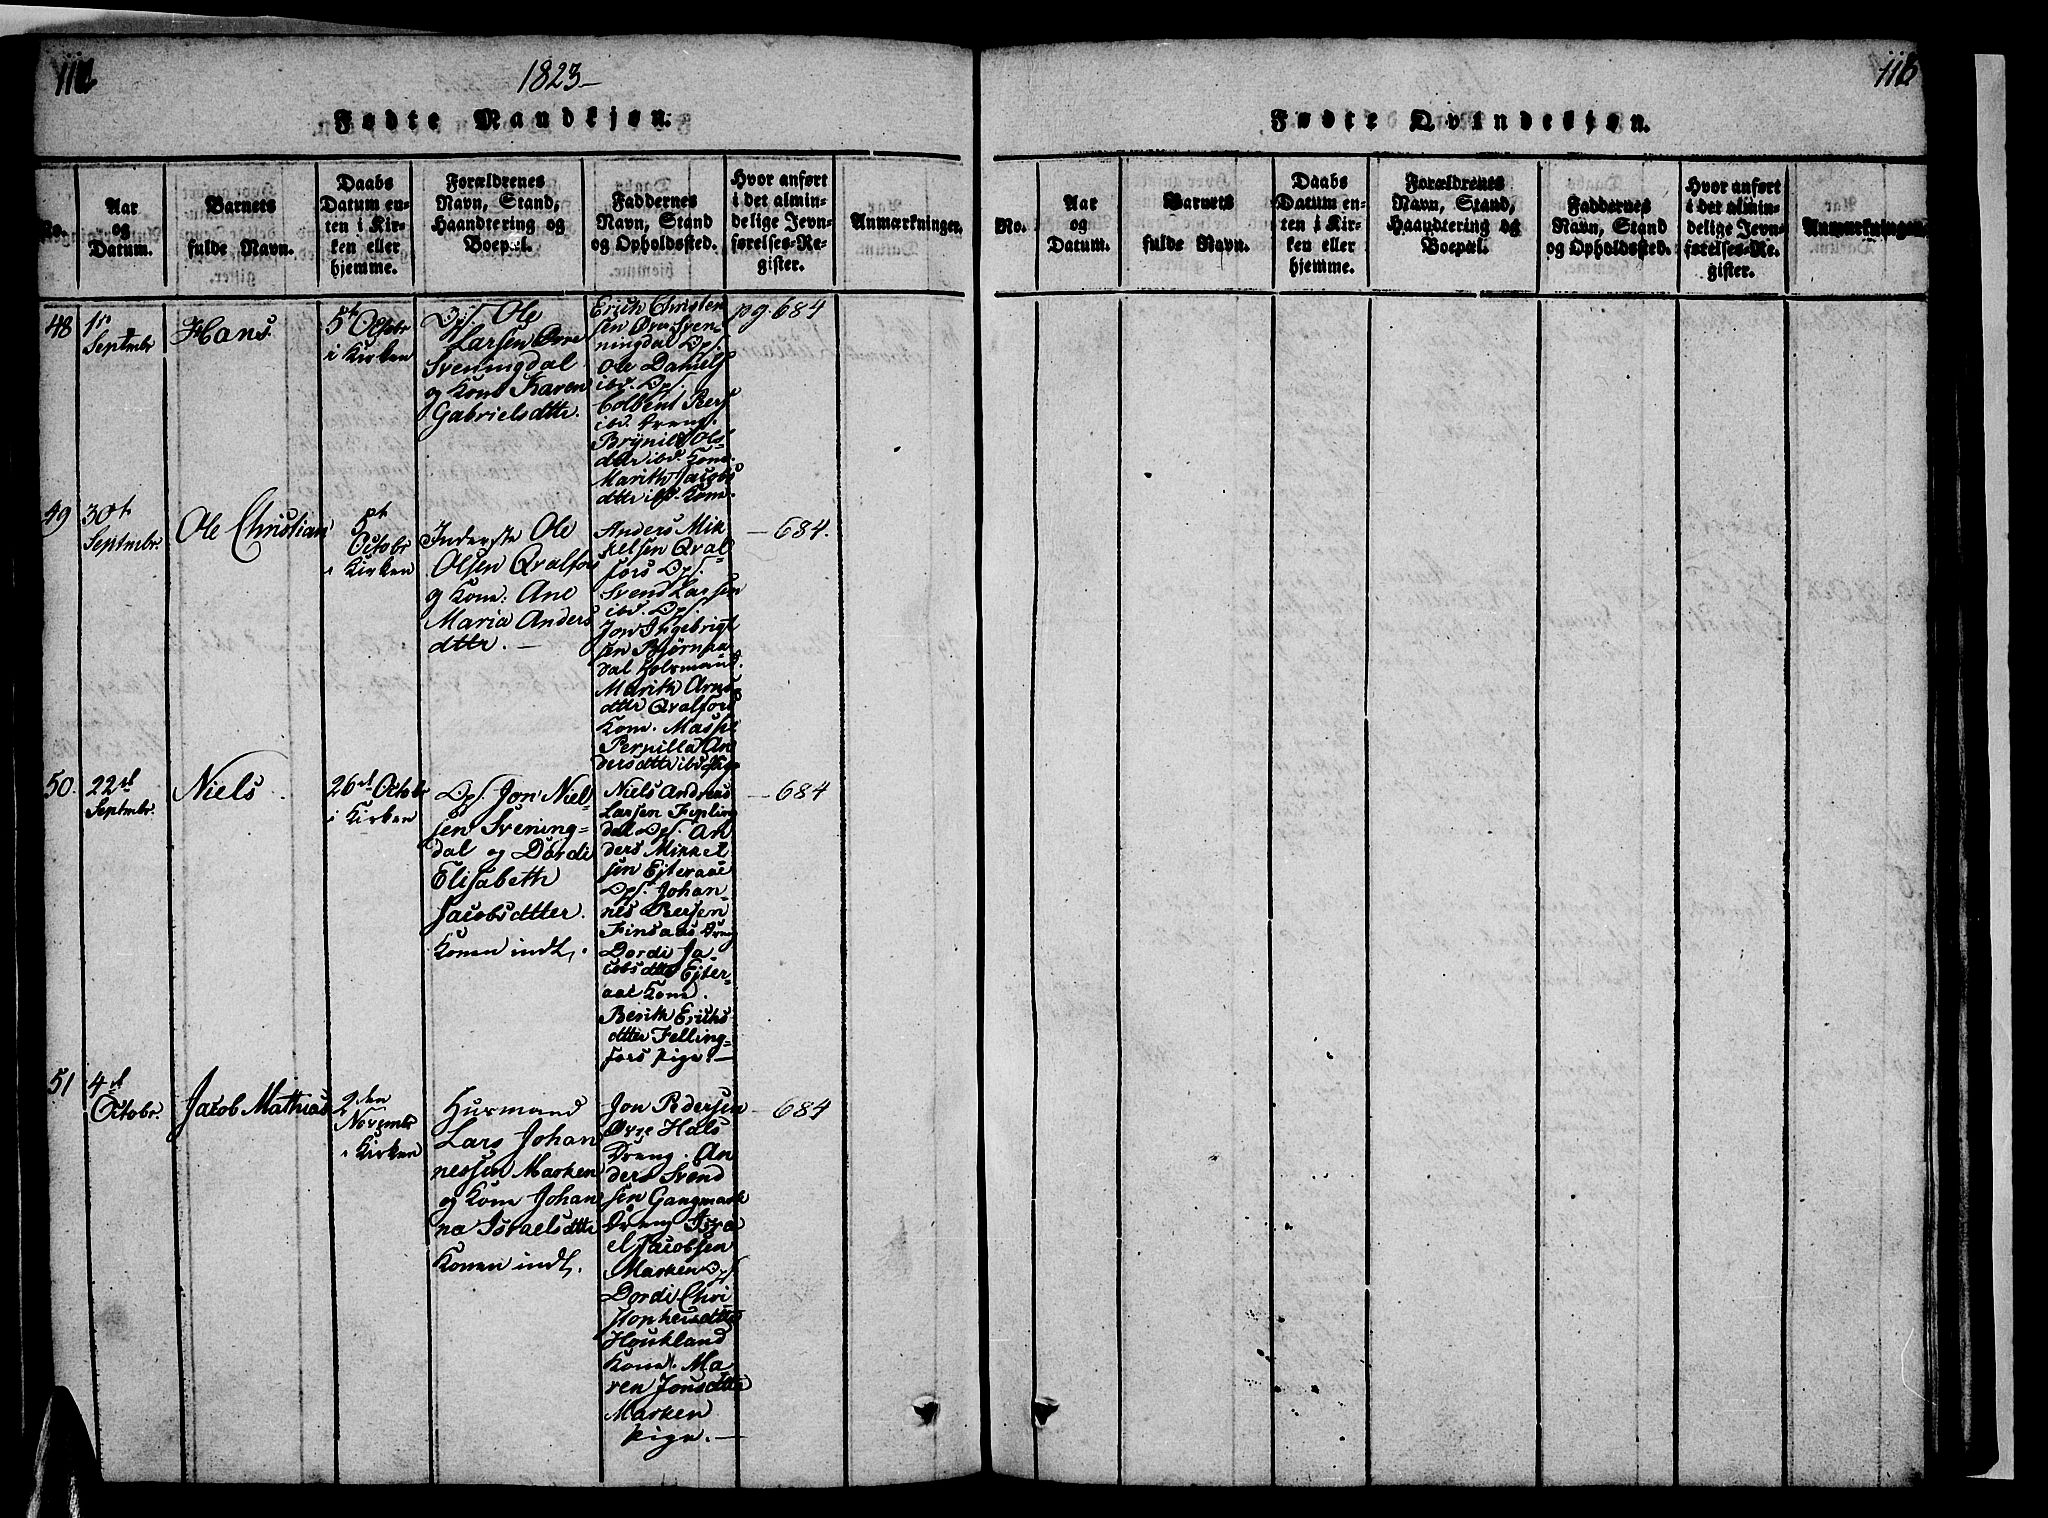 1823
Fødte Mandkjøn.
No.
Aar
og
Datum.
Barnets
fulde Navn.
Daabs
Datum en-
ten i Kir-
ken eller
hjemme.
Forældrenes
Navn, Stand,
Haandtering og
Boepæl.
Faddernes
Navn, Stand
og Opholdssted.
Hvor anført
i det almin-
delige Jevn-
førelses-Re-
gister.
Anmærkninger.
48
Septmbr
Hans
5t Octobr
i Kirken
Ops. Ole
Larsen Øvre
Sveningdal
og Kone Karen
Gabrielsdttr.
Erich Christen
sen Øvre Sven-
ningdal Ops.
Ole Daniels
ibd. Ops.
ibd. Dreng.
Brynild Ols-
dttr ibd. Kone.
Marith Jacobs
dttr ibd. Kone.
pg. 684
49
30t
Septmbr.
Ole Christian
5t
Octobr
i Kirken
Inderste Ole
Olsen Qvalfors
og Kone: Ane
Maria Anders
dttr. —
Anders Mik
kelsen Qval
fors Ops.
Svend Larsen
ibd. Ops.
Jon Ingebrigt
sen Bjørnaa
dal
Marith Arns
dttr Qvalfors
Kone.
Pernilla An
dersdttr ibd Pige
— 684.
50.
22d
Septmbr.
Niels
26d Octobr
i Kirken
Ops. Jon Niel-
sen Svening-
dal og Dordi
Elisabeth
Jacobsdtter.
Konen indl.
Niels Andreas
Larsen Fipling
dal Ops. An
ders Mikkel
sen Ejteraae
Ops. Johan-
nes Persen
Finsaas Dreng
Dordi Ja-
cobsdttr Ejter-
aae Kone.
Berith Erichs
dtter Felling-
fors pige. —
— 684
51
4d
Octobr.
Jacob Mathias
2den
Novembr
i Kirken
Husmand
Lars Johan
nessen Marken
og Kone Johan
na Israelsdttr
Konen indl.
Jon Pedersen
Øvre Hals
Dreng. An
ders Svend
sen Gangmark
Dreng Isra
el Jacobsen
Marken Ops
Dordi Chri
stophersdttr
Houkland
Kone. Ma
ren Jonsdttr
Marken
pige. —
— 684
Fødte Qvindekjøn.
No.
Aar
og
Datum.
Barnets
fulde Navn.
Daabs
Datum en-
ten i Kir-
ken eller
hjemme.
Forældrenes
Navn, Stand,
Haandtering og
Boepæl.
Faddernes
Navn, Stand
og Opholdssted.
Hvor anført
i det almin-
delige Jevn-
førelses-Re-
gister.
Anmærkninger.